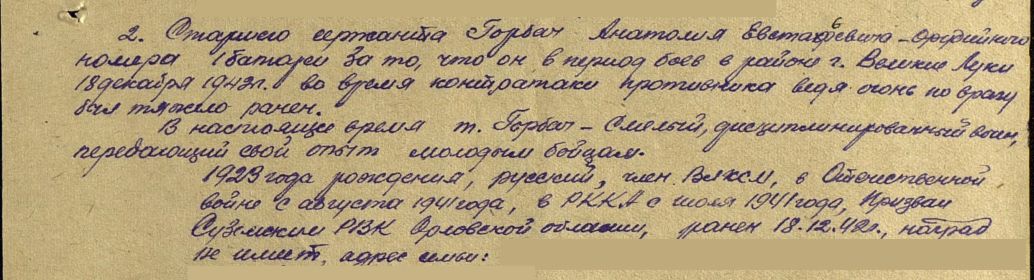 2. Старшего сержанта Горбач Анатолия Евстафьевича – орудийного
номера 1 батареи за то, что он в период боев в районе г. Великие Луки
18 декабря 1942г. во время контратаки противника ведя огонь по врагу
был тяжело ранен.
В настоящее время т. Горбач – смелый, дисциплинированный воин,
передающий свой опыт молодым бойцам.
1923 года рождения, русский, член ВЛКСМ, в Отечественной
войне с августа 1941 года, в РККА с июля 1941 года, Призван
Суземским РВК Орловской области, ранен 18.12.42г., наград
не имеет, адрес семьи: